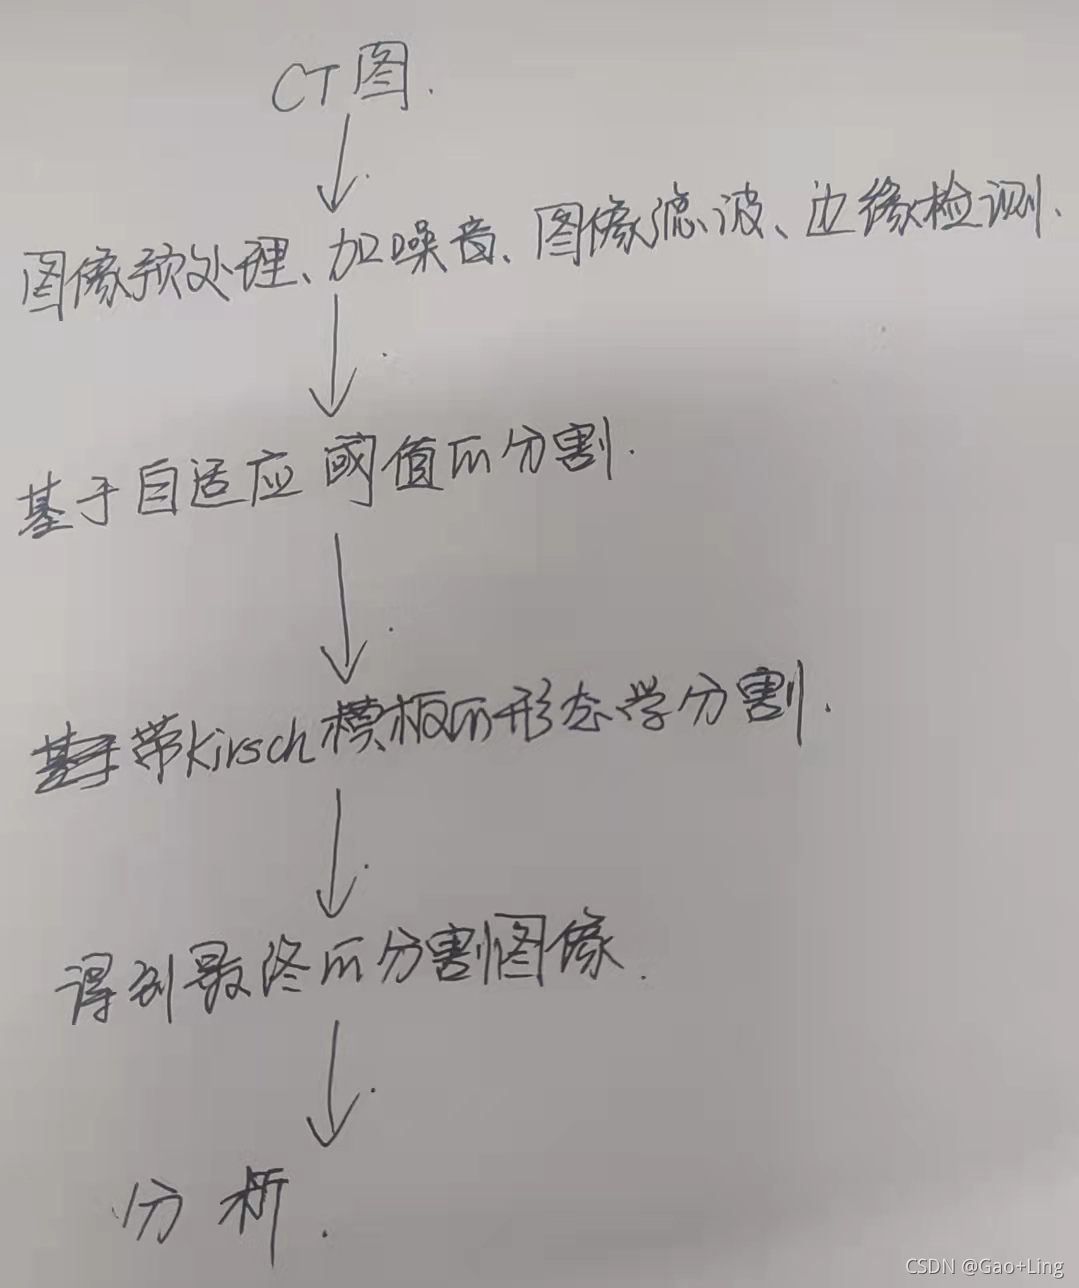 CT图.
图像预处理、加噪音、图像滤波、边缘检测.
基于自适应阈值的分割.
带Kirsch模板的形态学分割.
得到最终的分割图像.
分析.
CSDN @Gao+Ling